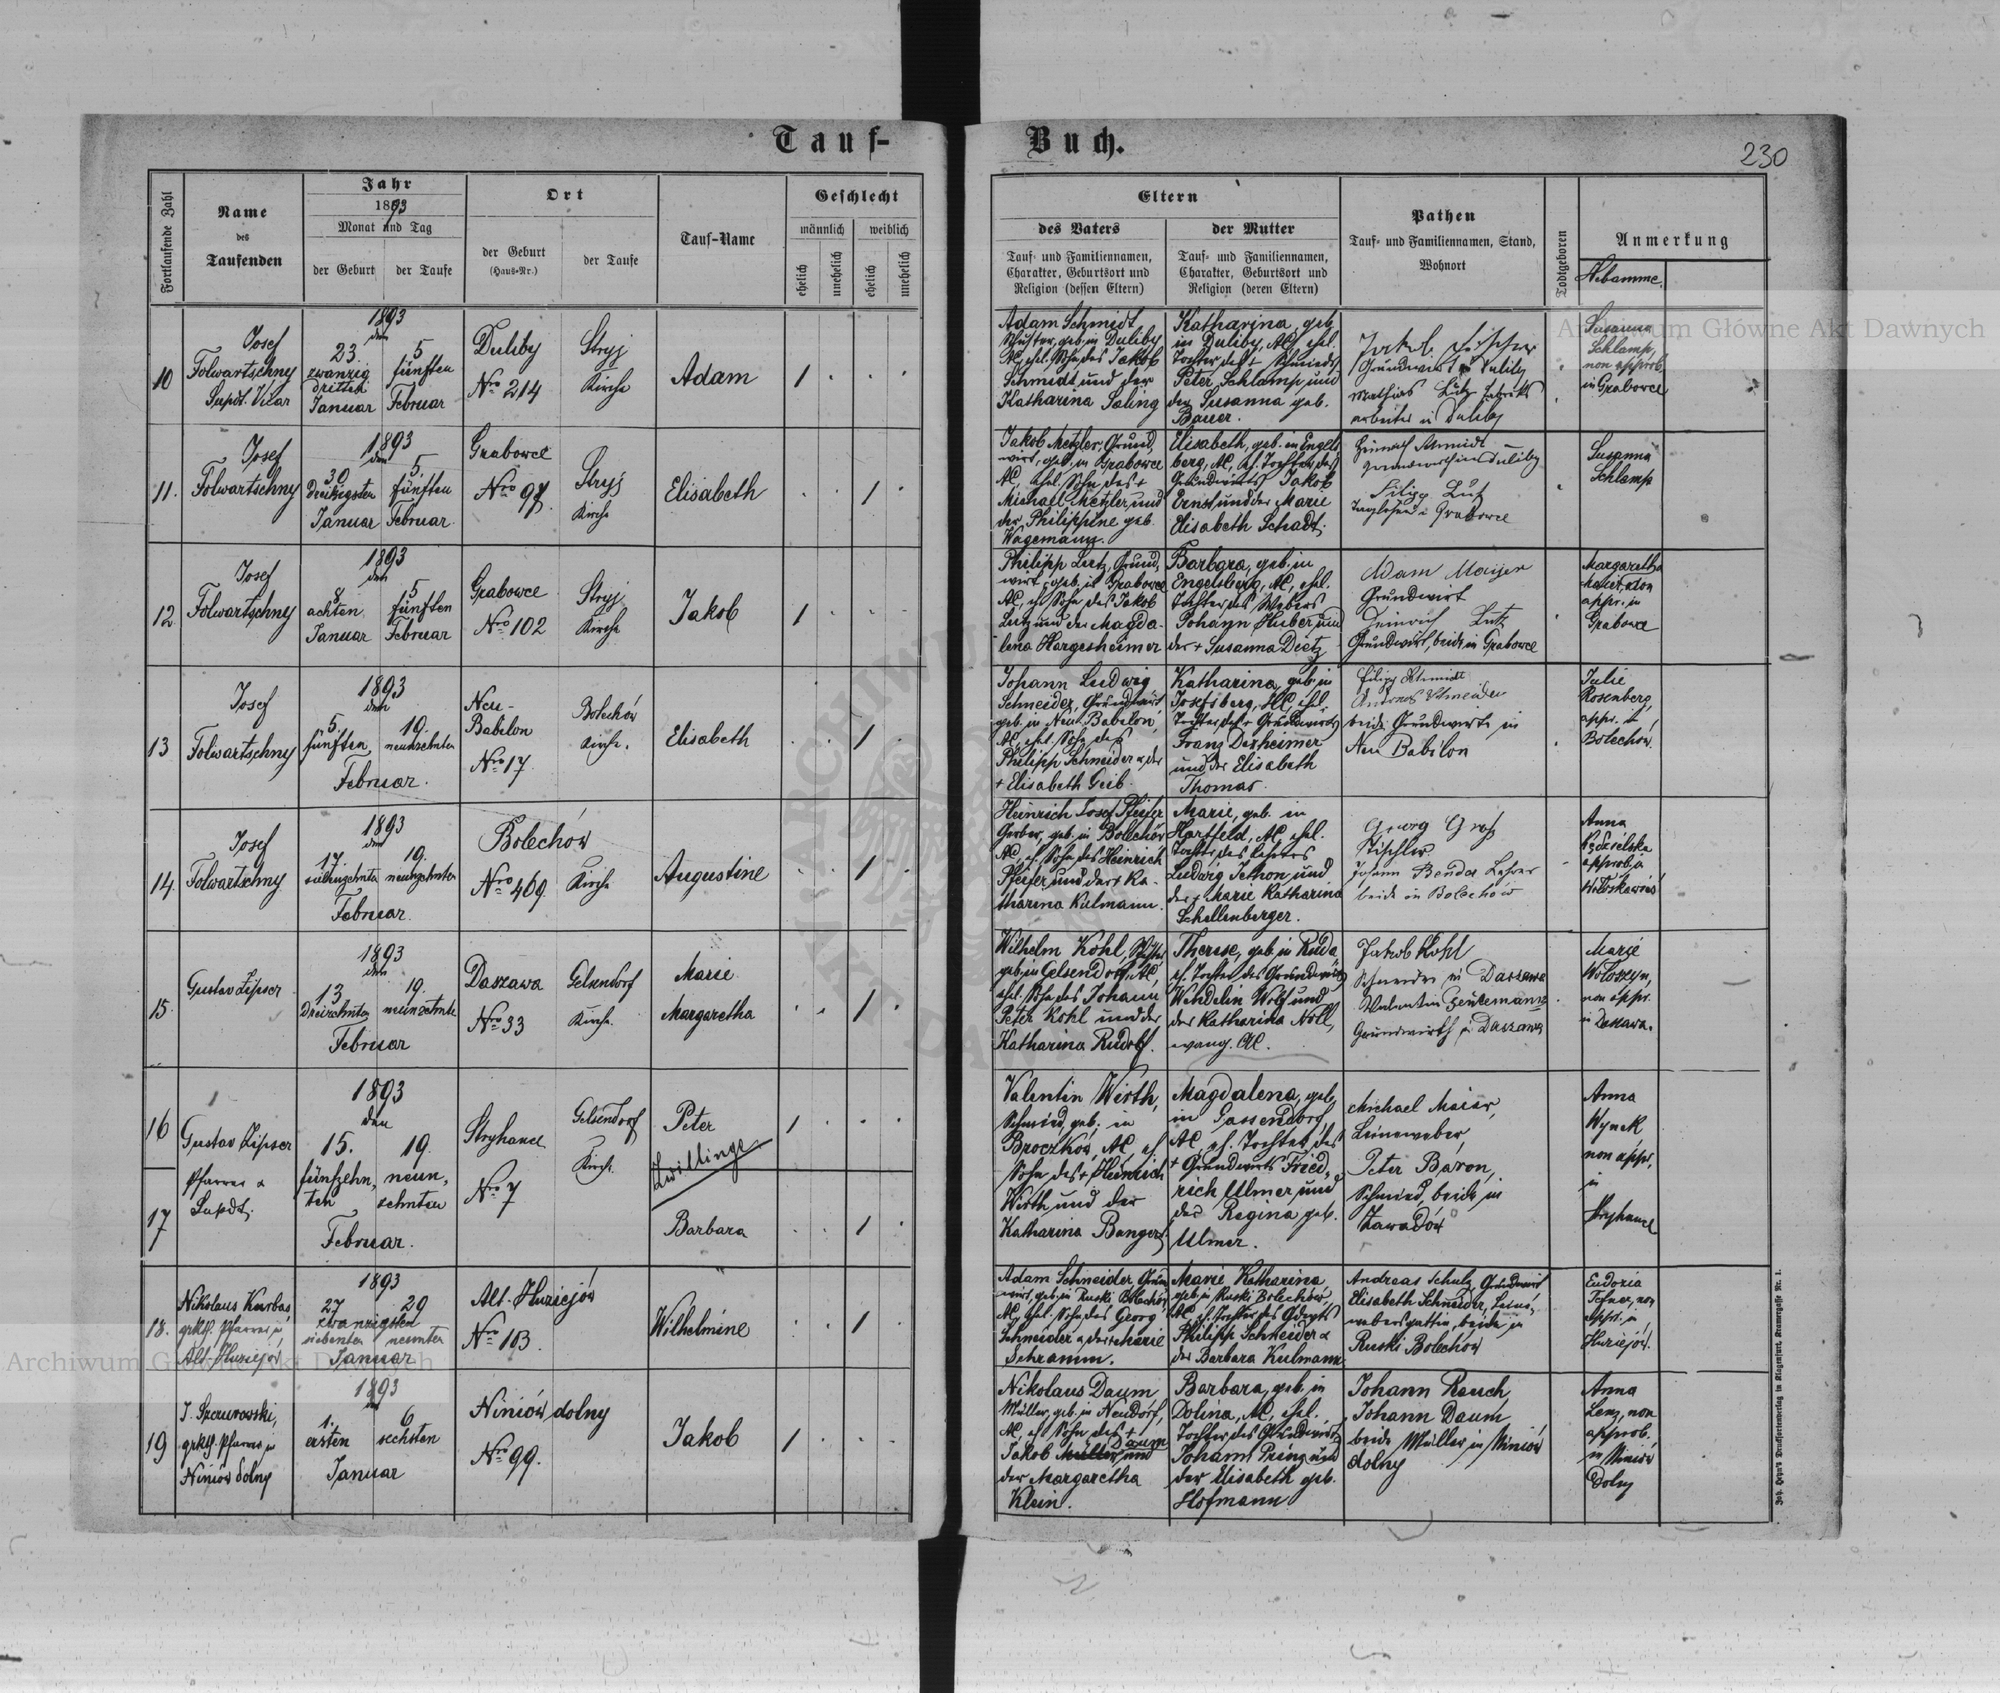 Tauf-Buch.
230
Fortlaufende Zahl
Name
des
Taufenden
Jahr
1893
Monat und Tag
der Geburt
der Taufe
Ort
der Geburt
(Haus-Nr.)
der Taufe
Tauf-Name
Geschlecht
männlich
weiblich
ehelich
unehelich
ehelich
unehelich
Eltern
des Vaters
Tauf- und Familiennamen,
Charakter, Geburtsort und
Religion (dessen Eltern)
der Mutter
Tauf- und Familiennamen,
Charakter, Geburtsort und
Religion (deren Eltern)
Pathen
Tauf- und Familiennamen, Stand,
Wohnort
Todtgeboren
Anmerkung
Hebamme.
10
Josef
Folwartschny
Supdt. Vikar
1893
den
23.
zwanzig
dritten
Januar
5
fünften
Februar
Duliby
Nro 214
Stryj
Kirche
Adam
1
Adam Schmidt
Schuster, geb. in Duliby
AC, ehel. Sohn des Jakob
Schmidt und der
Katharina Saling
Katharina, geb.
in Duliby, AC, ehel.
Tochter des + Schmieds
Peter Schlamp und
der Susanna geb.
Bauer.
Jakob Fischer
Grundwirt in Duliby
Mathias Lutz Fabriks
arbeiter in Duliby
Susanna
Schlamp,
non approb.
in Grabowce
11.
Josef
Folwartschny
1893
den
30
dreißigsten
Januar
5.
fünften
Februar.
Grabowce
Nro 97.
Stryj
Kirche
Elisabeth
1
Jakob Metzler, Grund,
wirt, geb. in Grabowce
AC, ehel. Sohn des +
Michael Metzler und
der Philippine geb.
Wagemann.
Elisabeth, geb. in Engels
berg, AC, eh. Tochter des
Grundwirts Jakob
Ernst und der Marie
Elisabeth Schadt.
Heinrich Schmidt
Grundwirth in Duliby
Filipp Lutz
Taglöhner in Grabowce
Susanna
Schlamp
12
Josef
Folwartschny
1893
den
8
achten
Januar
5
fünften
Februar
Grabowce
Nro 102
Stryj
Kirche
Jakob
1
Philipp Lutz, Grund,
wirt, geb. in Grabowce
AC, eh. Sohn des Jakob
Lutz und der Magda-
lena Hargesheimer
Barbara, geb. in
Engelsberg, AC, ehel.
Tochter des Webers
Johann Huber und
der + Susanna Dietz
Adam Maijer
Grundwirt
Heinrich Lutz
Grundwirt, beide in Grabowce
Margaretha
appr. in
Grabowce
13
Josef
Folwartschny
1893
den
5.
fünften
19.
neunzehnten
Februar.
Neu-
Babilon
Nro 17.
Bolechów
Kirche.
Elisabeth
1
Johann Ludwig
Schneider, Grundwirt
geb. in Neu-Babilon,
AC, ehel. Sohn des
Philipp Schneider u. der
+ Elisabeth Geib.
Katharina, geb. in
Josefsberg, HC, ehel.
Tochter des + Grundwirts
Franz Dexheimer
und der Elisabeth
Thomas.
Filipp Schmidt
Andreas Schneider
beide Grundwirte in
Neu Babilon
Julie
Rosenberg,
appr. in
Bolechów.
14.
Josef
Folwartschny
1893
den
17.
siebenzehnten
19.
neunzehnten
Februar.
Bolechów
Nro 469.
Kirche
Augustine
1
Heinrich Josef Pfeifer
Gerber, geb. in Bolechów
AC, eh. Sohn des Heinrich
Pfeifer und der + Ka-
tharina Kulmann.
Marie, geb. in
Hartfeld, AC, ehel.
Tochter des Lehrers
Ludwig Jethon und
der + Marie Katharina
Schellenberger.
Georg Groß
Tischler
Johann Bender Lehrer
beide in Bolechów
Anna
approb. in
15.
Gustav Zipser
1893
den
13
Dreizehnten
19.
neunzehnten
Februar
Daszawa
Nro 33
Gelsendorf
Kirche.
Marie
Margaretha
1
Wilhelm Kohl,
geb. in Gelsendorf, AC,
ehel. Sohn des Johann
Peter Kohl und der
Katharina Rudolf.
Therese, geb. in Ruda
eh. Tochter des Grundwirts
Wendelin Wolf und
der Katharina Noll,
evang. AC.
Jakob Kohl
Schneider in Daszawa
Valentin
Grundwirth in Daszawa
Marie
Wołoszyn,
non appr.
in Daszawa.
16
17
Gustav Zipser
Pfarrer u
Supdt.
1893
den
15.
fünfzehn,
ten
19.
neun,
zehnten
Februar.
Stryhance
Nro 7
Gelsendorf
Kirche.
Peter
Zwillinge
Barbara
1
1
Valentin Wirth,
Schmied, geb. in
Broczków, AC, eh.
Sohn des + Heinrich
Wirth und der
Katharina Bangert.
Magdalena, geb.
in Gassendorf,
AC, eh. Tochter des
+ Grundwirts Fried,
rich Ulmer und
der Regina geb.
Ulmer.
Michael Maier,
Leineweber,
Peter Baron,
Schmied, beide in
Zawadów
Anna
Wynek
non appr.
in
Stryhance
18.
Nikolaus Karbas
grkth. Pfarrer in
Alt-Huziejów
1893
27
29
zwanzigsten
siebenten
neunten
Januar
Alt-Huziejów
Nro 103.
Wilhelmine
1
Adam Schneider Grund
wirt, geb. in Ruski Bolechów,
AC, ehel. Sohn des Georg
Schneider u. der + Marie
Schramm.
Marie Katharina
geb. in Ruski Bolechów,
AC, eh. Tochter des
Philipp Schneider u
der Barbara Kulmann
Andreas Schulz, Grundwirt
Elisabeth Schneider, Leine,
webersgattin, beide in
Ruski Bolechów
Eudoxia
non
appr. in
Huziejów.
19
J. Szczurowski,
grkth. Pfarrer in
Niniów dolny
1893
den
1.
ersten
6
sechsten
Januar
Niniów dolny
Nro 99.
Jakob
1
Nikolaus Daum
Müller, geb. in Neudorf,
AC, eh. Sohn des +
Jakob Müller Daum und
der Margaretha
Klein.
Barbara, geb. in
Dolina, AC, ehel.
Tochter des Grundwirts
Johann Prinz und
der Elisabeth geb.
Hofmann
Johann Rauch,
Johann Daum,
beide Müller in Niniów
dolny
Anna
Lenz, non
approb.
in Niniów
dolny
Joh. Heyn's Drucksortenverlag in Klagenfurt, Kramergasse Nr. 1.
Archiwum Główne Akt Dawnych
Archiwum Główne Akt Dawnych